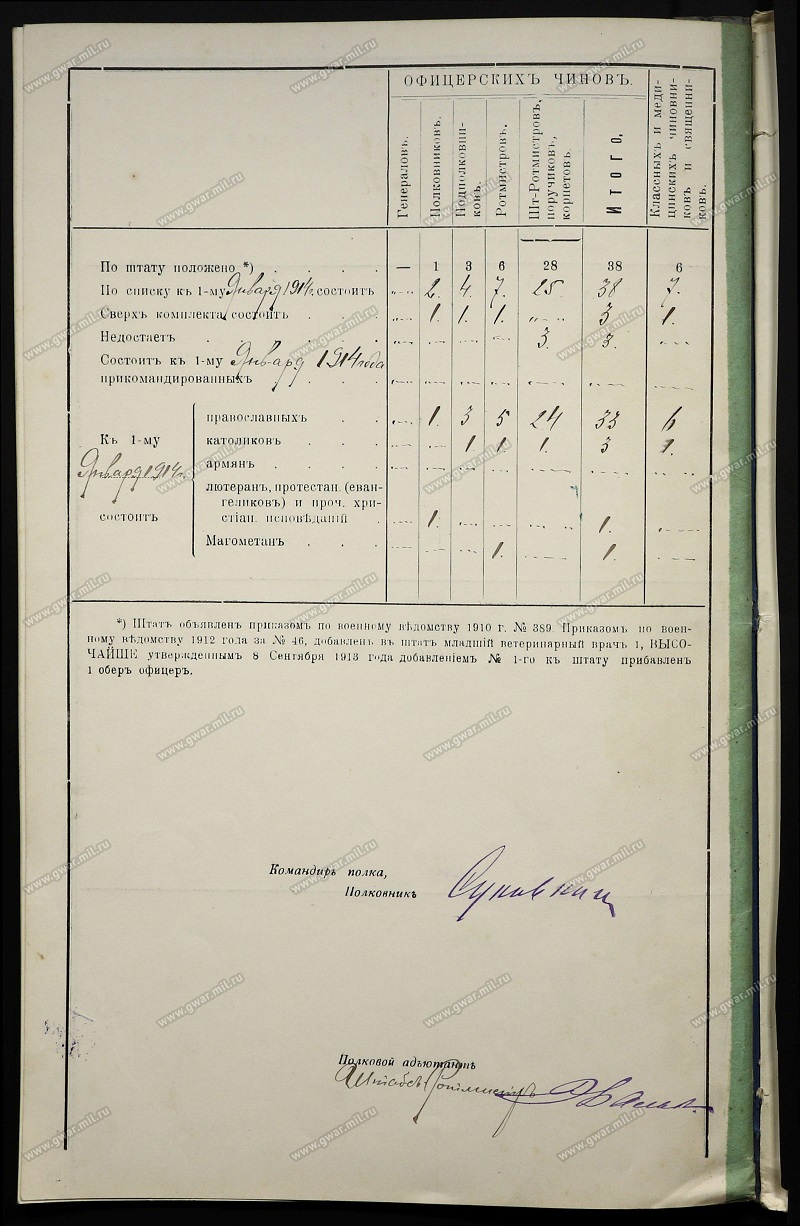 ОФИЦЕРСКИХЪ ЧИНОВЪ.
Генераловъ.
Полковниковъ.
Подполковни-
ковъ.
Ротмистровъ.
Шт-Ротмистровъ,
поручиковъ,
корнетовъ.
Итого.
Классныхъ и меди-
цинскихъ чиновни-
ковъ и священни-
ковъ.
По штату положено *) . . . . — 1 3 6 28 38 6
По списку къ 1-му Января 1914 г. состоитъ „—„ 2. 4. 7. 25. 38 7.
Сверхъ комплекта состоитъ . . . „—„ 1. 1. 1. „—„ 3 1.
Недостаетъ . . . . . „—„ „—„ „—„ „—„ 3. 3. „—„
Состоитъ къ 1-му Января 1914 года
прикомандированныхъ . . . „—„ „—„ „—„ „—„ „—„ „—„ „—„
Къ 1-му
Января 1914 г.
состоитъ
православныхъ . . „—„ 1. 3 5 24 33 6
католиковъ . . . „—„ „—„ 1 1 1. 3 1.
армянъ . . . . „—„ „—„ „—„ „—„ „—„ „—„ „—„
лютеранъ, протестан. (еван-
геликовъ) и проч. хри-
стіан. исповѣданій . „—„ 1. „—„ „—„ „—„ 1. „—„
Магометанъ . . . „—„ „—„ „—„ 1. „—„ 1. „—„
*) Штатъ объявленъ приказомъ по военному вѣдомству 1910 г. № 389. Приказомъ по воен-
ному вѣдомству 1912 года за № 46, добавленъ въ штатъ младшій ветеринарный врачъ 1, ВЫСО-
ЧАЙШЕ утвержденнымъ 8 Сентября 1913 года добавленіемъ № 1-го къ штату прибавленъ
1 оберъ офицеръ.
Командиръ полка,
Полковникъ Суковкин
Полковой адъютантъ
Штабсъ-Ротмистръ
www.gwar.mil.ru